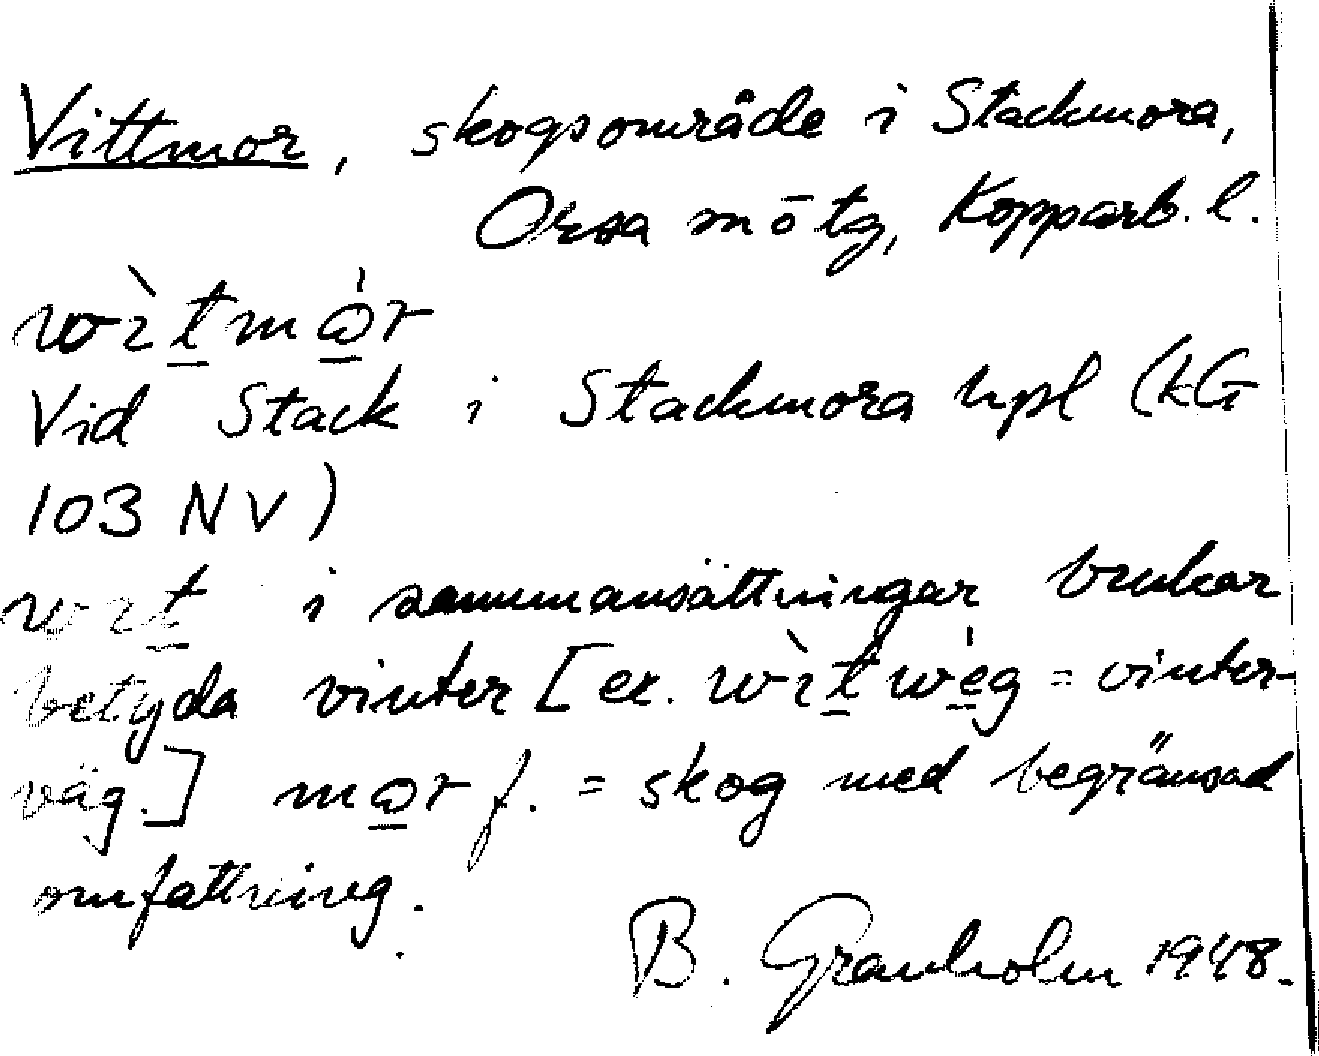 Vittmor, skogsområde i Stackmora,
Orsa m ō tg, Kopparb. l.
wìtmǻr
Vid Stack i Stackmora hpl (kG
103 NV)
wit i sammansättningar brukar
betyda vinter [ex. wìtwég = vinter-
väg.] mår f. = skog med begränsad
omfattning.
B. Granholm 1948.